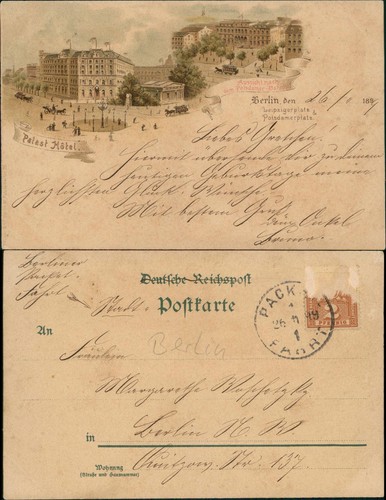 Palast Hôtel
Berlin, den 26/11 1897
Leipzigerplatz &
Potsdamerplatz.
Liebes Gretchen!
Hiermit übersende dir zu deinem
heutigen Geburtstage meine
herzlichsten Glück Wünsche.
Mit bestem Gruß
Dein Onkel
Berliner
Packet-
Fahrt
Deutsche Reichspost
Stadt-
Postkarte
An
Berlin
PACK
26 11
1
FAHRT
2
PFENNIG
Fräulein
Margarethe
in Berlin N. W.
Wohnung
(Straße und Hausnummer)
Quitzow-Str. 137.